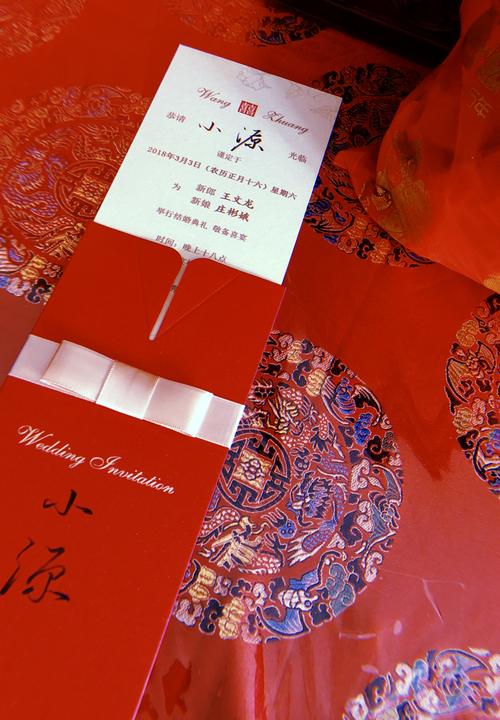 Wang 囍 Zhuang
恭请 小源 光临
谨定于
2018年3月3日（农历正月十六）星期六
为 新郎 王文龙
新娘 庄彬斌
举行结婚典礼 敬备喜宴
时间：晚上十八点
Wedding Invitation
小
源